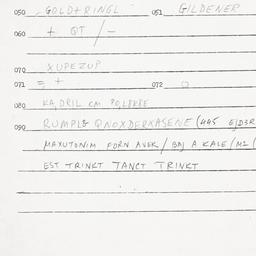 050 GOLD+RINGL 051 GILDENER
060 + QT /-
070 XUPEZUP
071 = + 072 O
080 KA, DRIL CM
090 RUMPLE QNOXDERKASENE (445
MAXUTONIM FORN AVEK / BAJ A KALE / M2 (
EST TRINKT TANCT TRINKT